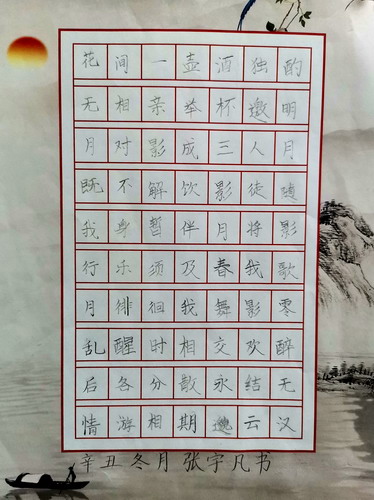 花间一壶酒独酌
无相亲举杯邀明
月对影成三人月
既不解饮影徒随
我身暂伴月将影
行乐须及春我歌
月徘徊我舞影零
乱醒时相交欢醉
后各分散永结无
情游相期邈云汉
辛丑冬月张宇凡书